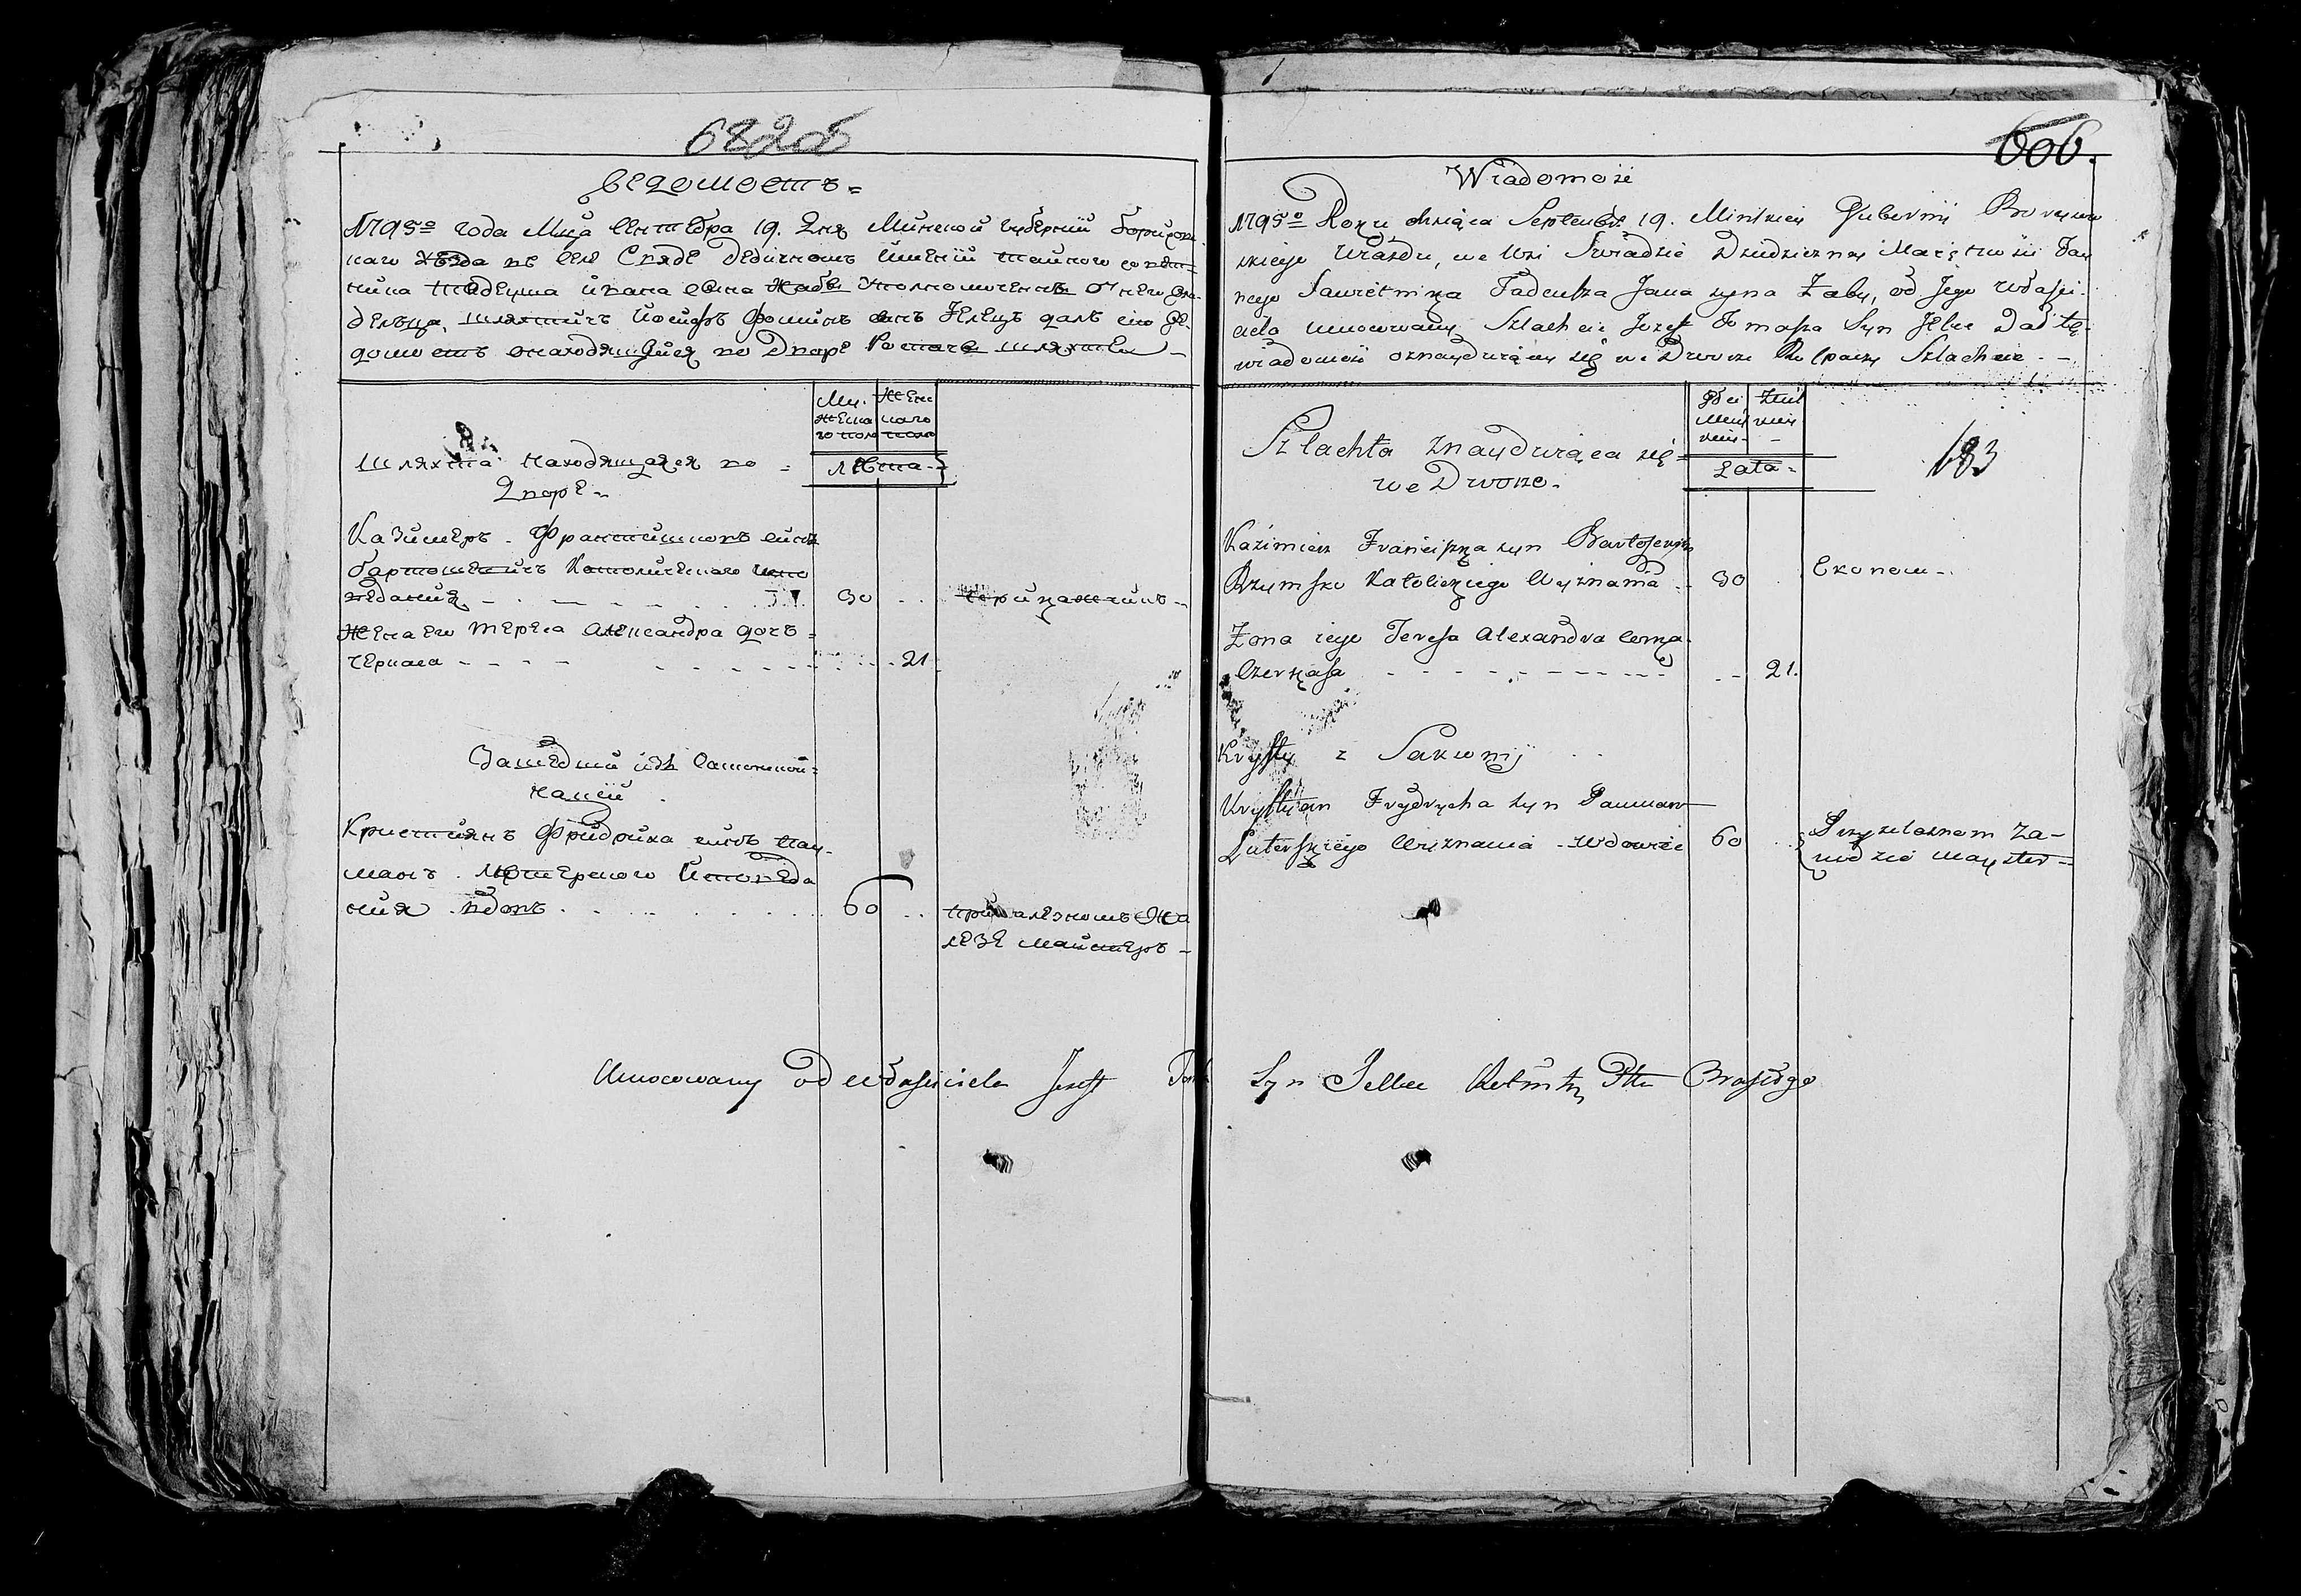 682об
Ведомость
1795го года Мца Сентебра 19. дня Минской губернии Борисов
скаго уезда въ селе Свяде дедичномъ имении тайного совет-
ника Тадеуша Ивана сына Жабы уполномоченъ отнего вла-
дельца, шляхтичъ Иосифъ Фоминъ снъ далъ сию ве-
домость онаходящийся во Дворе шляхты
Шляхта находящаяся во
Дворе
Му.
жеска
го пола
Жен
скаго
пола
Лета
Казимеръ Францишковъ сынъ
бартошевичъ Католическаго испо
ведания 30
Жена его Тереса Александра дочь
Черкаса 21
Зашедши изъ Саксонской
нации
Кристиянъ Фридриха сынъ Пау
манъ Лютерского Исповеда
ния вдовъ 60
при железномъ
майстеръ
606.
Wiadomość
1795o Roku Msiąca Septembr. 19. Minskiey Gubernii Borysow
skiego Uiazdu, we Wsi Swiadzie Dziedziczney Maiętnosci Tay
nego Sawietnika Tadeusza Jana syna Zaby, od Jego własci-
ciela umocowany Szlachcic Jozef Tomasza Syn Jelec Dał tę
wiadomość oznayduiącey się we Dworze Szlachcie
683
Szlachta znayduiąca się
we Dworze
Płci
Męs
kiey
Żeń
skiey
Lata
Kazimierz Franciszka syn Bartoszewicz
Rzymsko Katolickiego Wyznania 30 Ekonom
Zona iego Teresa Alexandra corka
Czerkasa 21.
Krysty z Saxonij
Krystyan Frydrycha syn Pauman
Luterskiego Wyznania Wdowiec 60 Przy zelaznem za-
wodzie mayster
Umocowany od własciciela Jozeff Tom Syn Jellec Rotmistrz Ptu Brasłgo